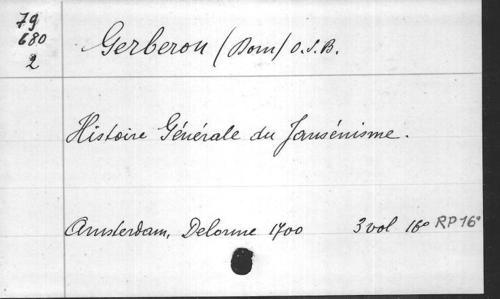 79
680
2
Gerberon (Dom) O.S.B.
Histoire Générale du Jansénisme.
Amsterdam, Delorme 1700 3 vol 16° RP 16°